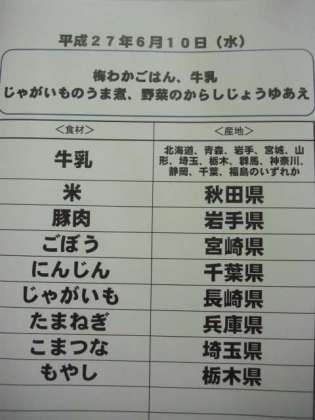 平成27年6月10日（水）
梅わかごはん、牛乳
じゃがいものうま煮、野菜のからしじょうゆあえ
＜食材＞ ＜産地＞
牛乳 北海道、青森、岩手、宮城、山形、埼玉、栃木、群馬、神奈川、静岡、千葉、福島のいずれか
米 秋田県
豚肉 岩手県
ごぼう 宮崎県
にんじん 千葉県
じゃがいも 長崎県
たまねぎ 兵庫県
こまつな 埼玉県
もやし 栃木県